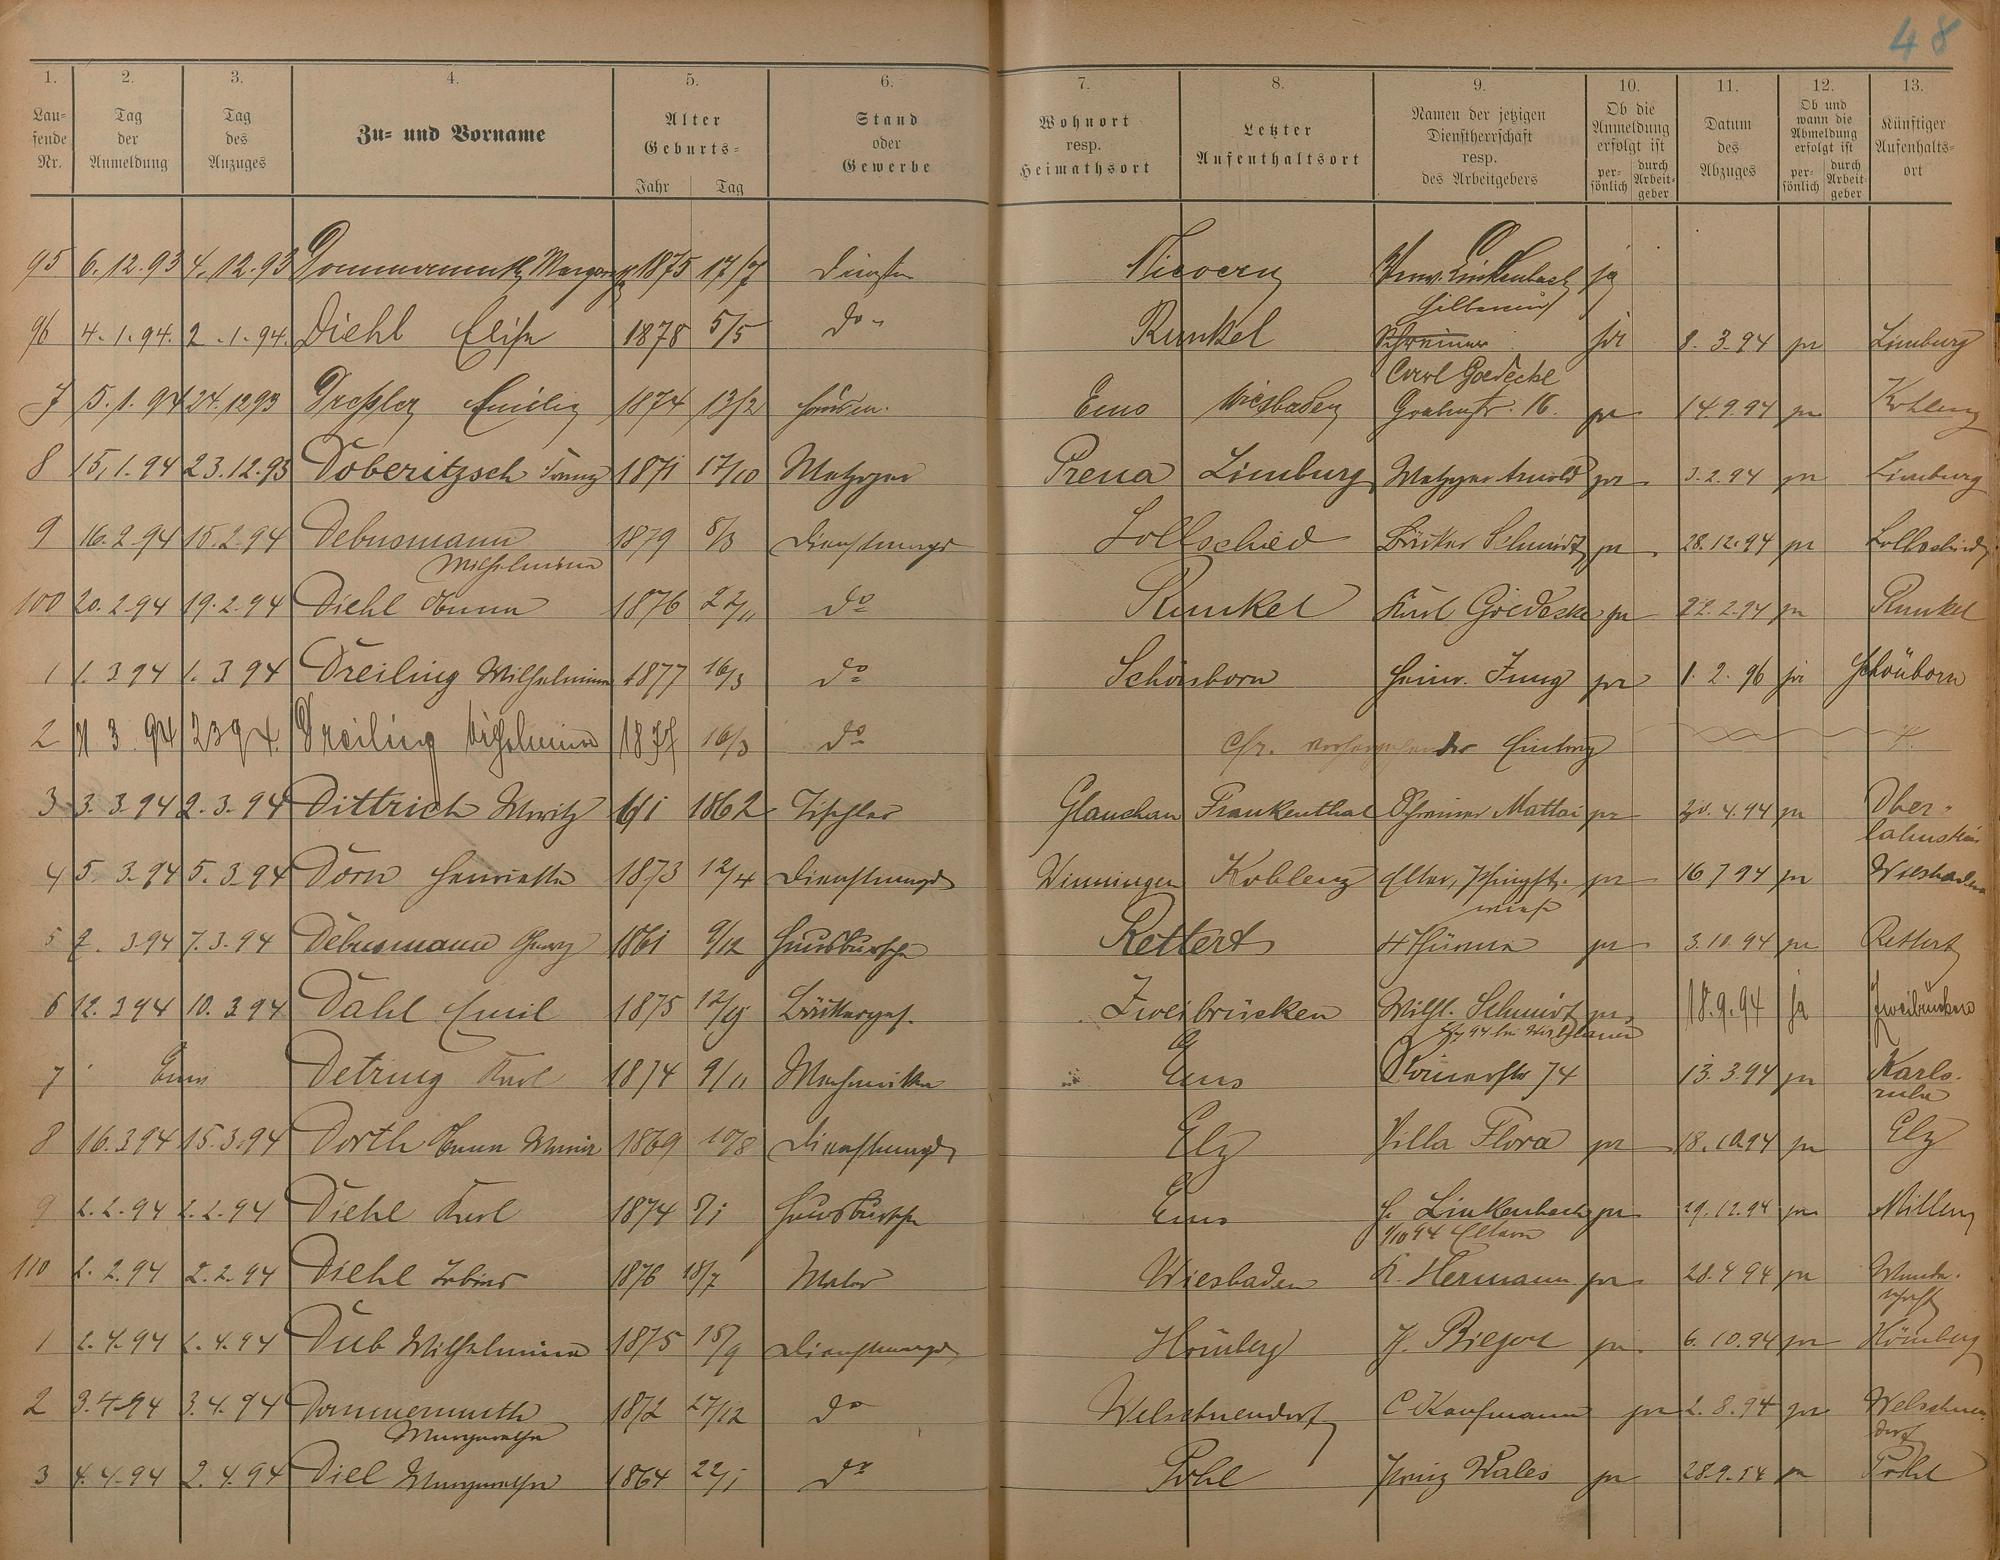 48
1. 2. 3. 4. 5. 6. 7. 8. 9. 10. 11. 12. 13.
Laufende Nr. Tag der Anmeldung Tag des Anzuges Zu- und Vorname Alter Geburts- Jahr Tag Stand oder Gewerbe Wohnort resp. Heimathsort Letzter Aufenthaltsort Namen der jetzigen Dienstherrschaft resp. des Arbeitgebers Ob die Anmeldung erfolgt ist persönlich durch Arbeitgeber Datum des Abzuges Ob und wann die Abmeldung erfolgt ist persönlich durch Arbeitgeber Künftiger Aufenthaltsort
95 6.12.93 4.12.93 1875 17/7 Nievern Linkenbach ja
96 4.1.94. 2.1.94. Diehl Elise 1878 5/5 do Runkel Schreiner ja 8.3.94 ja Limburg
7 5.1.94 24.12.93 Dreßler Emilie 1874 13/2 Ems Wiesbaden Carl Goedecke
Grabenstr. 16. ja 14.9.94 ja Koblenz
8 15.1.94 23.12.93 Doberitzsch Franz 1871 17/10 Metzger Limburg Metzger Arnold ja 3.2.94 ja Limburg
9 16.2.94 15.2.94 Debusmann 1879 8/3 Dienstmagd Lollschied Bäcker Schmidt ja 28.12.94 ja Lollschied
Wilhelmine
100 20.2.94 19.2.94 Diehl Anna 1876 22/11 do Runkel Karl Goedecke ja 22.2.94 ja Runkel
1 1.3 94 1.3 94 Dreiling Wilhelmine 1877 16/3 do Schönborn Heinr. Jung ja 1.2.96 ja Schönborn
2 3 94 2 3 94. Dreiling Wilhelmine 1877 16/3 do cfr. vorhergehender Eintrag
3 3.3.94 2.3.94 Dittrich Moritz 6/1 1862 Tischler Glauchau Frankenthal Schreiner Mattai ja 4.94 ja Ober-
lahnstein
4 5.3.94 5.3.94 Dorn Henriette 1873 12/4 Dienstmagd Winningen Koblenz ja 16 7 94 ja Wiesbaden
5 3 94 7.3.94 Debusmann Georg 1861 9/12 Hausbursche Rettert ja 3.10.94 ja Rettert
6 12.3 94 10.3 94 Dahl Emil 1875 Bäckerges. Zweibrücken Wilh. Schmidt ja 18.9.94 ja Zweibrücken
7 Ems Detring Karl 1874 9/11 Mechaniker Ems Römerstr 74 13.3.94 ja Karls-
ruhe
8 16.3 94 15.3.94 Dorth Anna Maria 1869 10/8 Dienstmagd Elz Villa Flora ja 18.10.94 ja Elz
9 2.2.94 2.2.94 Diehl Karl 1874 Hausbursche Ems H. Linkenbach ja 29.12.94 ja
1/10 94 Eltern
110 2.2.94 2.2.94 Diehl 1876 18/7 Maler Wiesbaden K. Hermann ja 28.4 94 ja Wander-
schaft
1 2.4.94 2.4.94 Dub Wilhelmine 1875 15/9 Dienstmagd Hömberg ja 6.10.94 ja Hömberg
2 3.4.94 3.4.94 Dommermuth 1872 27/12 do Welschneudorf C Kaufmann ja 2.8.94 ja Welschneu
dorf
Margarethe
3 4.4.94 2.4.94 Diel Margarethe 1864 22/1 do Pohl Prinz Wales ja 28.9.94 ja Pohl